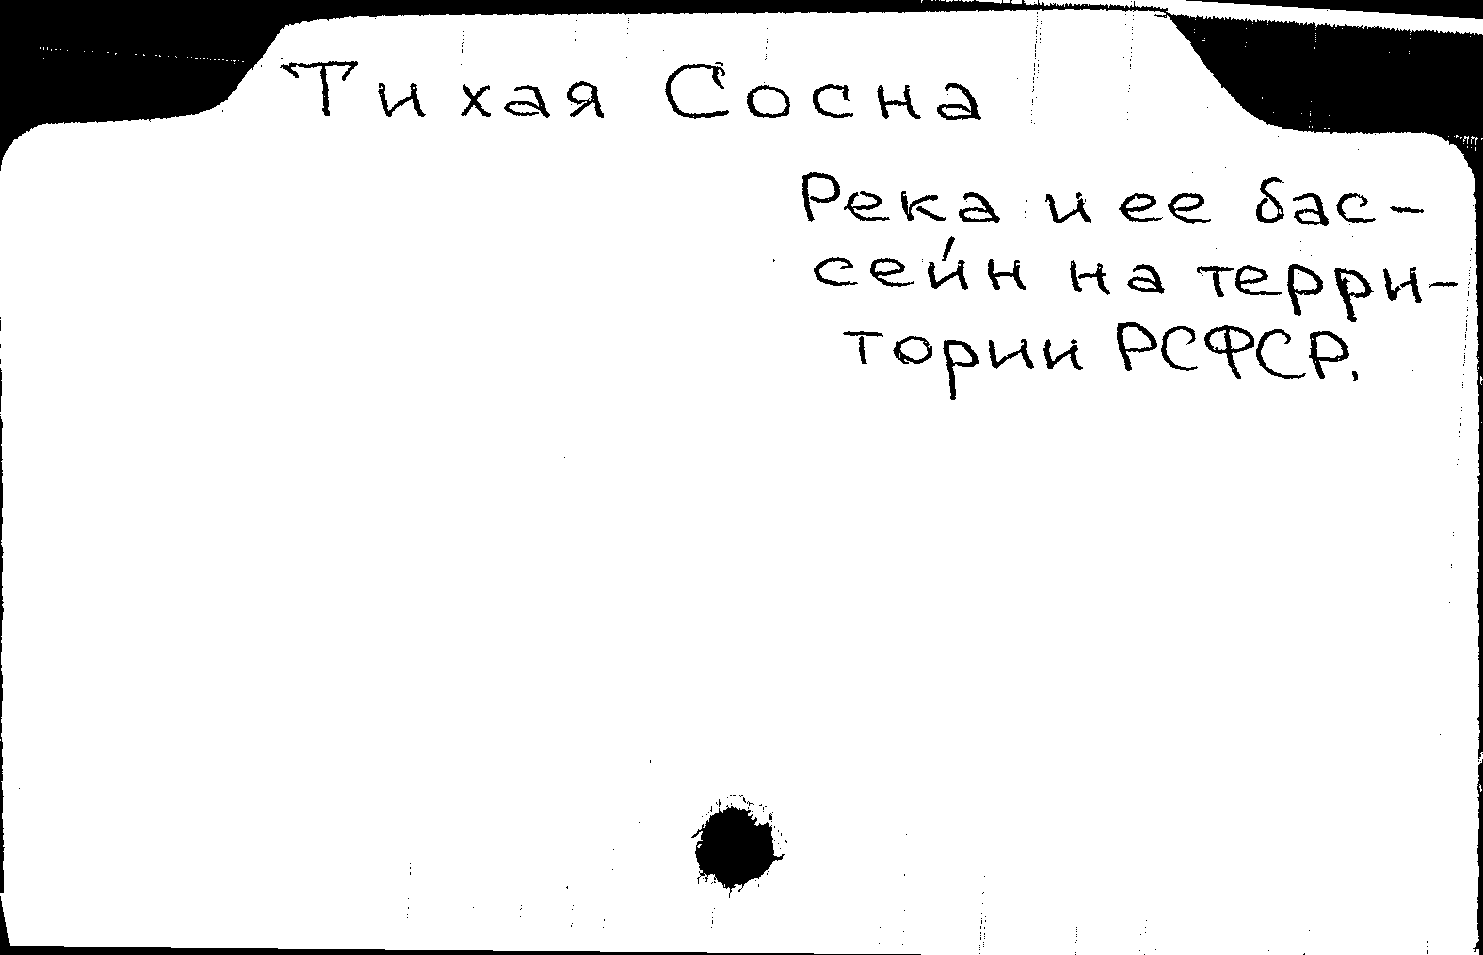 Тихая Сосна
Река и ее бас-
сейн на терри-
тории РСФСР.